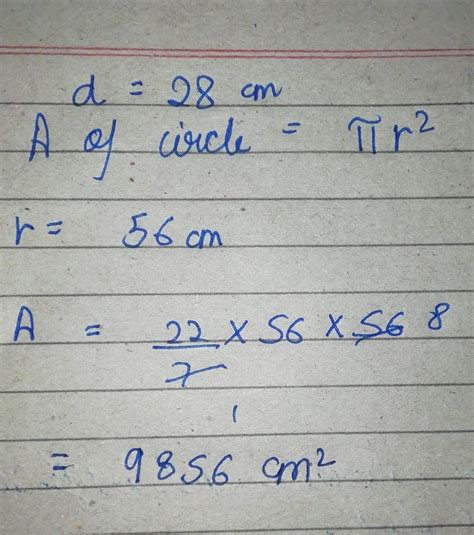 d = 28 cm
A of circle = πr²
r = 56 cm
A = 22/7 × 56 × 56 8
1
= 9856 cm²